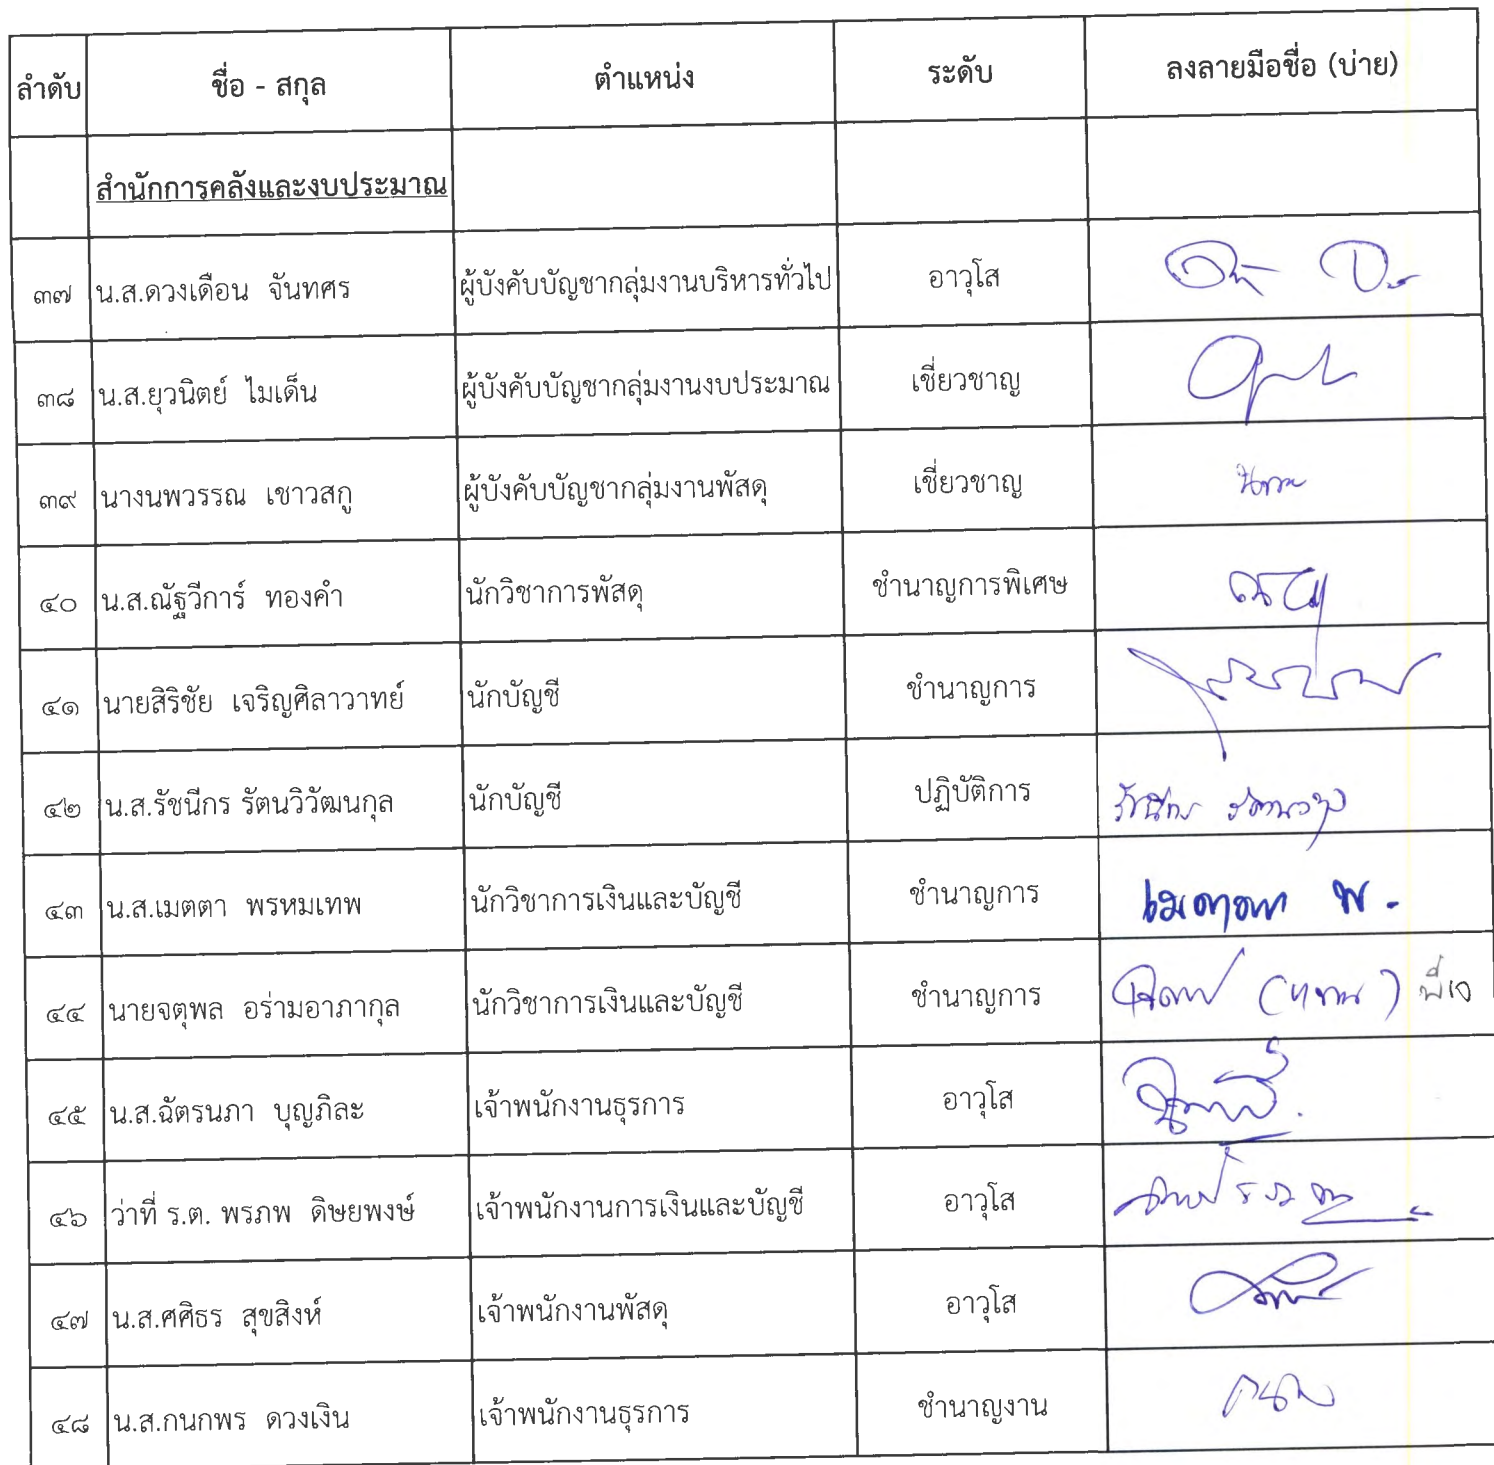 ลำดับ ชื่อ - สกุล ตำแหน่ง ระดับ ลงลายมือชื่อ (บ่าย)
สำนักการคลังและงบประมาณ
๓๗ น.ส.ดวงเดือน จันทศร ผู้บังคับบัญชากลุ่มงานบริหารทั่วไป อาวุโส
๓๘ น.ส.ยุวนิตย์ ไมเด็น ผู้บังคับบัญชากลุ่มงานงบประมาณ เชี่ยวชาญ
๓๙ นางนพวรรณ เชาวสกู ผู้บังคับบัญชากลุ่มงานพัสดุ เชี่ยวชาญ
๔๐ น.ส.ณัฐวีการ์ ทองคำ นักวิชาการพัสดุ ชำนาญการพิเศษ
๔๑ นายสิริชัย เจริญศิลาวาทย์ นักบัญชี ชำนาญการ
๔๒ น.ส.รัชนีกร รัตนวิวัฒนกุล นักบัญชี ปฏิบัติการ
๔๓ น.ส.เมตตา พรหมเทพ นักวิชาการเงินและบัญชี ชำนาญการ เมตตา พ.
๔๔ นายจตุพล อร่ามอาภากุล นักวิชาการเงินและบัญชี ชำนาญการ
๔๕ น.ส.ฉัตรนภา บุญภิละ เจ้าพนักงานธุรการ อาวุโส
๔๖ ว่าที่ ร.ต. พรภพ ดิษยพงษ์ เจ้าพนักงานการเงินและบัญชี อาวุโส
๔๗ น.ส.ศศิธร สุขสิงห์ เจ้าพนักงานพัสดุ อาวุโส
๔๘ น.ส.กนกพร ดวงเงิน เจ้าพนักงานธุรการ ชำนาญงาน